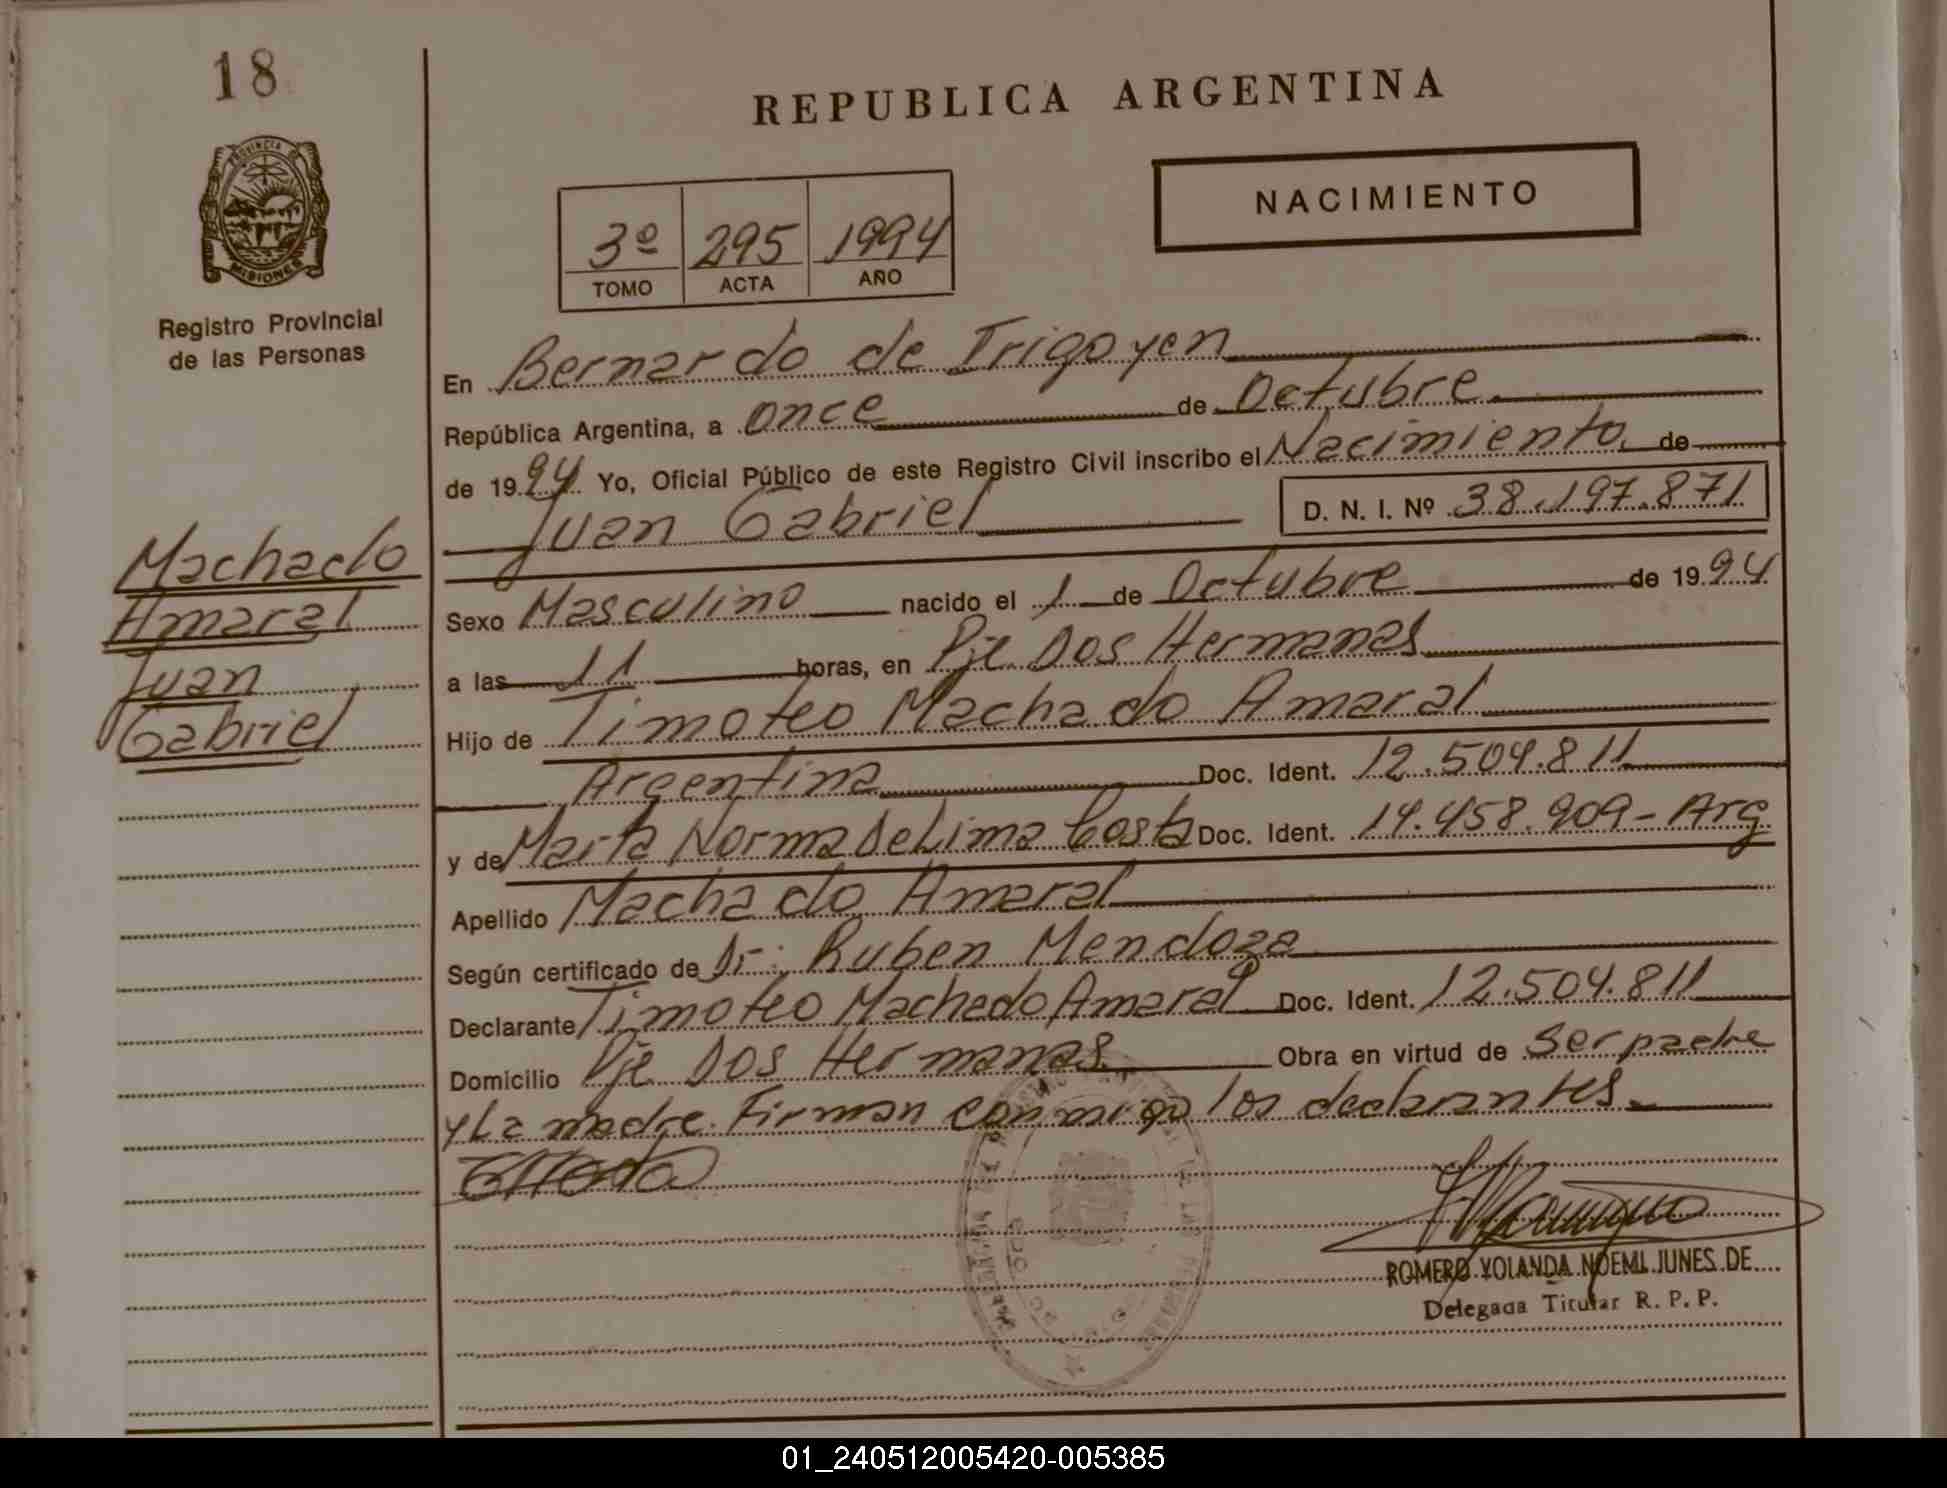 18
REPUBLICA ARGENTINA
PROVINCIA DE
MISIONES
Registro Provincial
de las Personas
NACIMIENTO
3º 295 1994
TOMO ACTA AÑO
En Bernardo de Irigoyen
República Argentina, a once de Octubre
de 1994 Yo, Oficial Público de este Registro Civil inscribo el Nacimiento de
Juan Gabriel D. N. I. Nº 38.197.871
Machado
Amaral
Juan
Gabriel
Sexo Masculino nacido el 1 de Octubre de 1994
a las 11 horas, en Pje Dos Hermanas
Hijo de Timoteo Machado Amaral
Argentina Doc. Ident. 12.504.811
y de Marta Norma De Lima Costa Doc. Ident. 14.458.909 - Arg
Apellido Machado Amaral
Según certificado de Dr: Ruben Mendoza
Declarante Timoteo Machado Amaral Doc. Ident. 12.504.811
Domicilio Pje Dos Hermanas Obra en virtud de ser padre
y La madre. Firman conmigo los declarantes.
ROMERO YOLANDA NOEMI JUNES DE
Delegada Titular R. P. P.
01_240512005420-005385